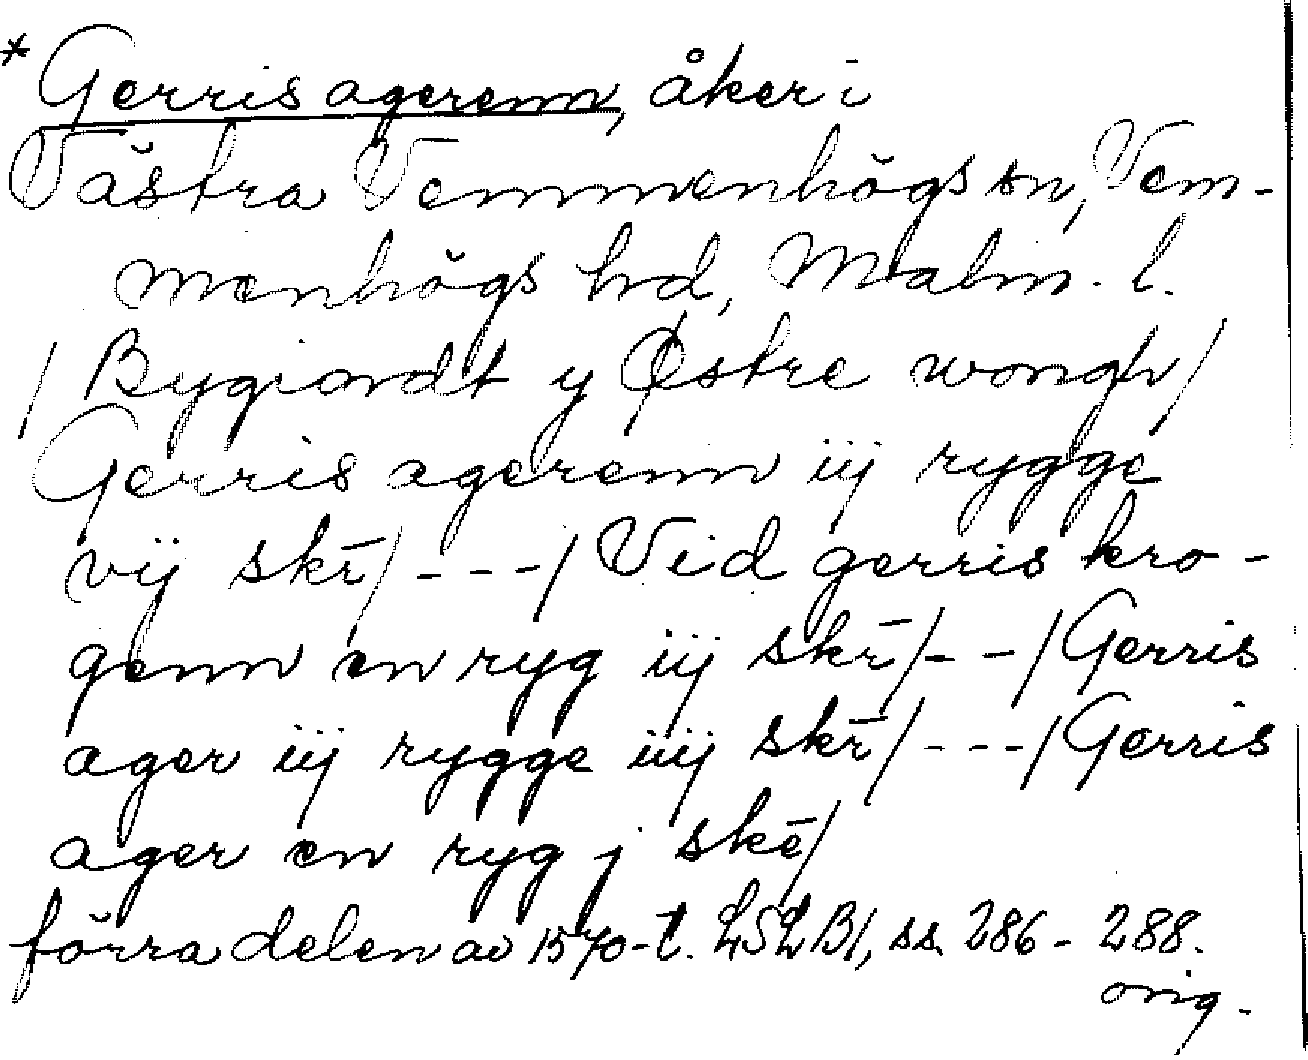 * Gerris agerenn, åker i
Västra Vemmenhögs sn, Vem-
menhögs hd, Malm. l.
/ Bygiondt y Østre wongh /
Gerris agerenn iij rygge
vij skr̄ / - - - / Vid gerris kro-
genn en ryg iij skr̄ / - - / Gerris
ager iij rygge iiij skr̄ / - - - / Gerris
ager en ryg j skē /
förra delen av 1570-t. LSLB1, ss. 286 - 288.
orig.